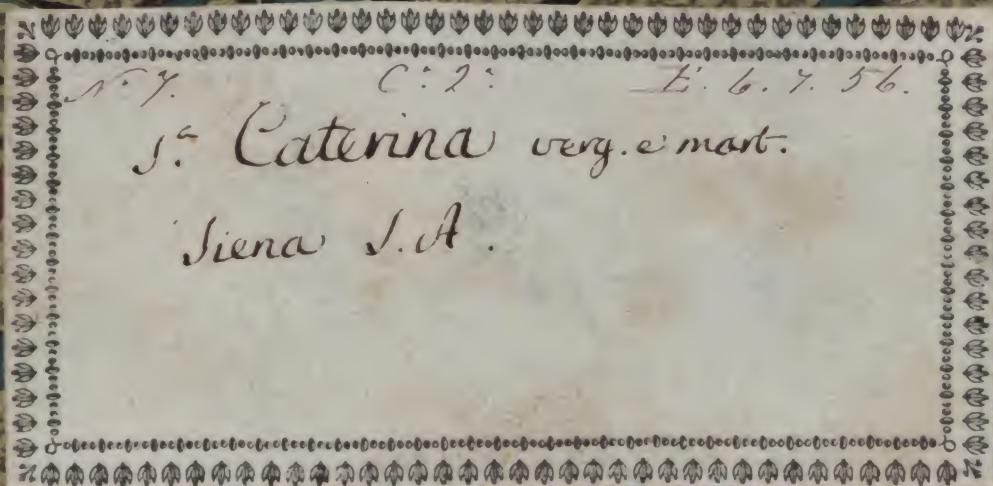 N. 7. C.a 2.a E. 6. 7. 56.
S.a Caterina verg. e mart.
Siena S. A.